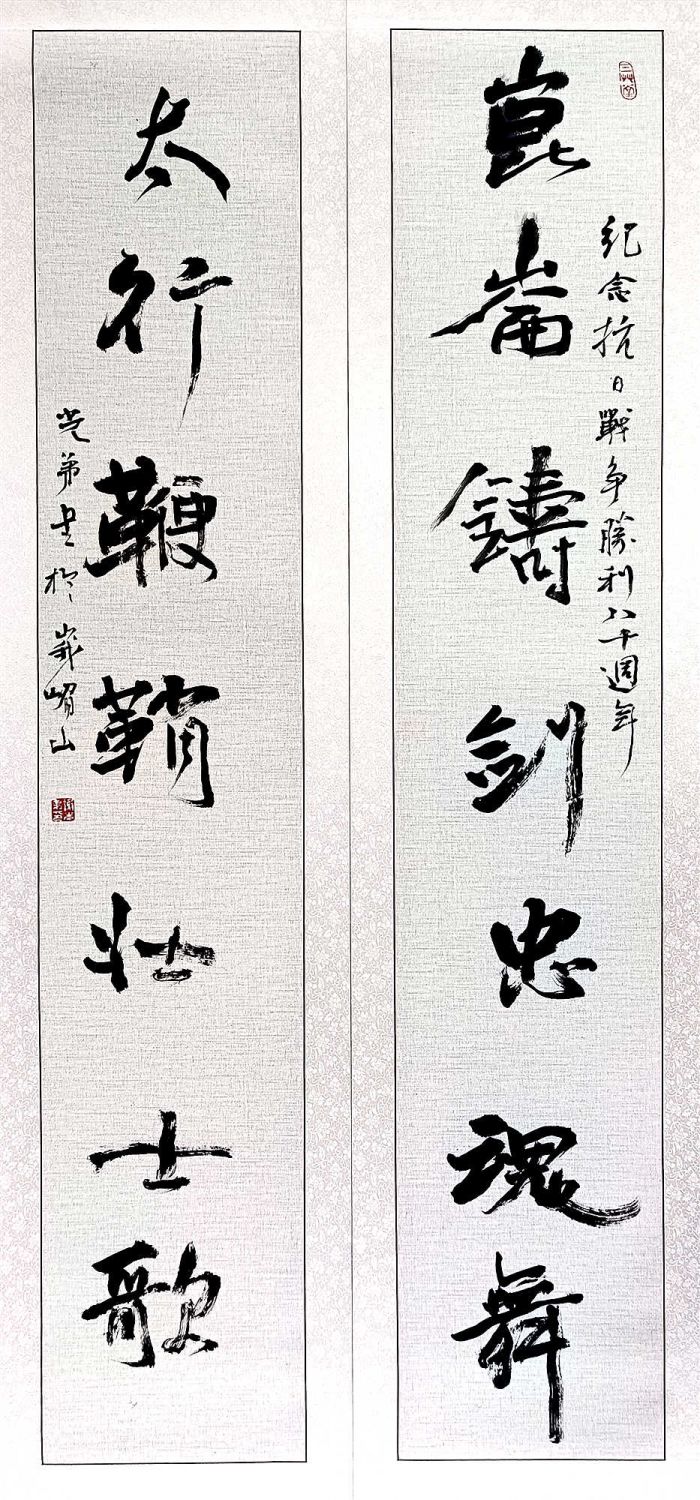 崑崙鑄劍忠魂舞
紀念抗日戰爭勝利八十週年
太行鞭鞘壯士歌
光弟書於峨嵋山